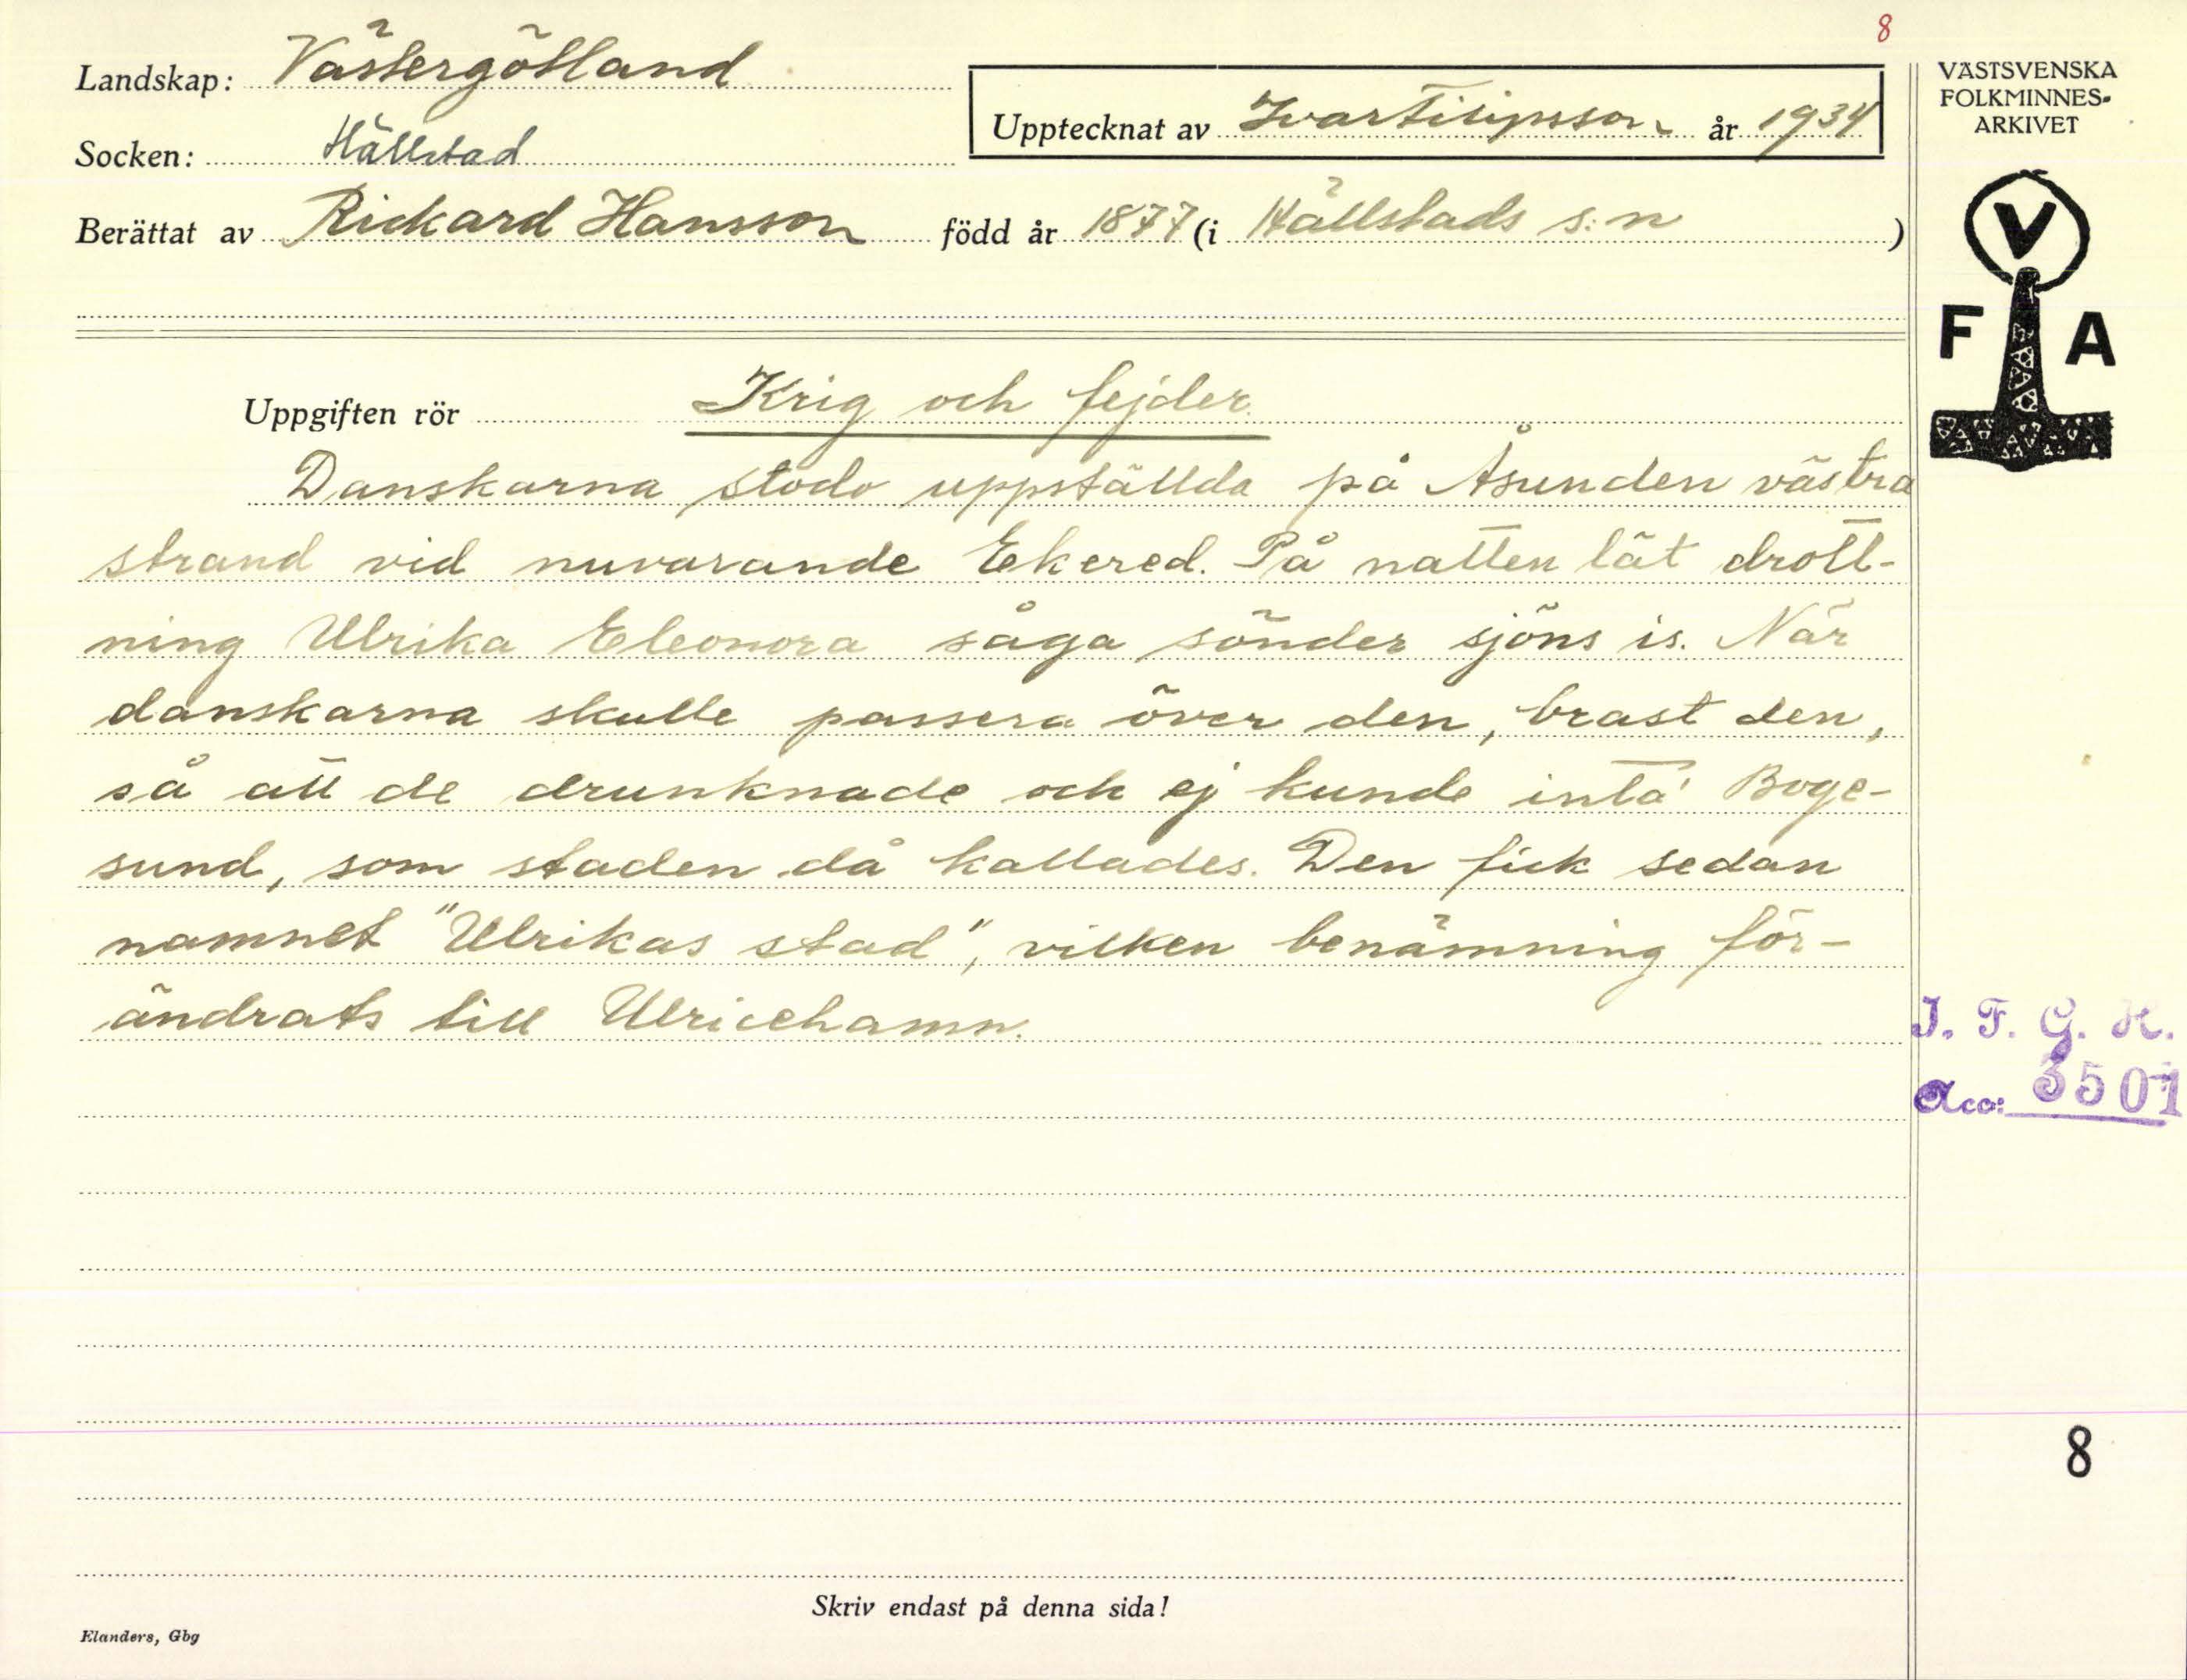 8
Landskap: Västergötland
Socken: Hällstad
Upptecknat av Ivar Filipsson år 1934
Berättat av Rickard Hansson född år 1877 (i Hällstads s:n)
VÄSTSVENSKA
FOLKMINNES-
ARKIVET
V
F A
Uppgiften rör Krig och fejder
Danskarna stodo uppställda på Åsunden västra
strand vid nuvarande Ekered. På natten lät drott-
ning Ulrika Eleonora såga sönder sjöns is. När
danskarna skulle passera över den, brast den,
så att de drunknade och ej kunde inta Boge-
sund, som staden då kallades. Den fick sedan
namnet "Ulrikas stad", vilken benämning för-
ändrats till Ulricehamn.
I. F. G. H.
Acc: 3501
8
Skriv endast på denna sida!
Elanders, Gbg